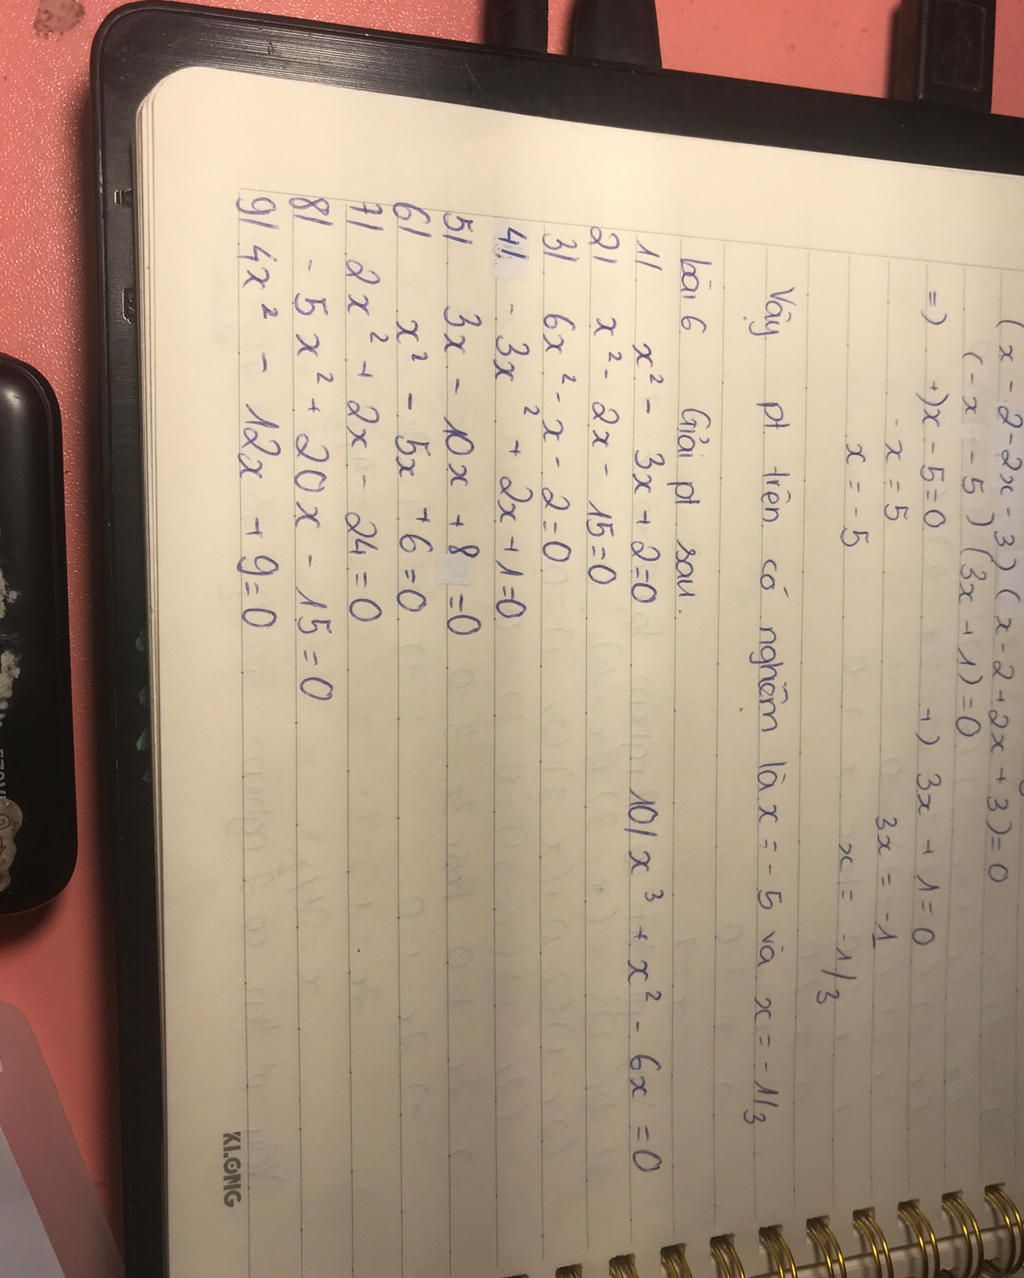 (x - 2 - 2x - 3) (x - 2 + 2x + 3) = 0
(- x - 5) (3x + 1) = 0
=) +) x - 5 = 0 +) 3x + 1 = 0
- x = 5 3x = -1
x = - 5 x = -1/3
Vậy pt trên có nghiệm là x = - 5 và x = - 1/3
bài 6 Giải pt sau.
1/ x² - 3x + 2 = 0 10/ x³ + x² - 6x = 0
2/ x² - 2x - 15 = 0
3/ 6x² - x - 2 = 0
4/ - 3x² + 2x + 1 = 0
5/ 3x - 10x + 8 = 0
6/ x² - 5x + 6 = 0
7/ 2x² + 2x - 24 = 0
8/ - 5x² + 20x - 15 = 0
9/ 4x² - 12x + 9 = 0
KLONG